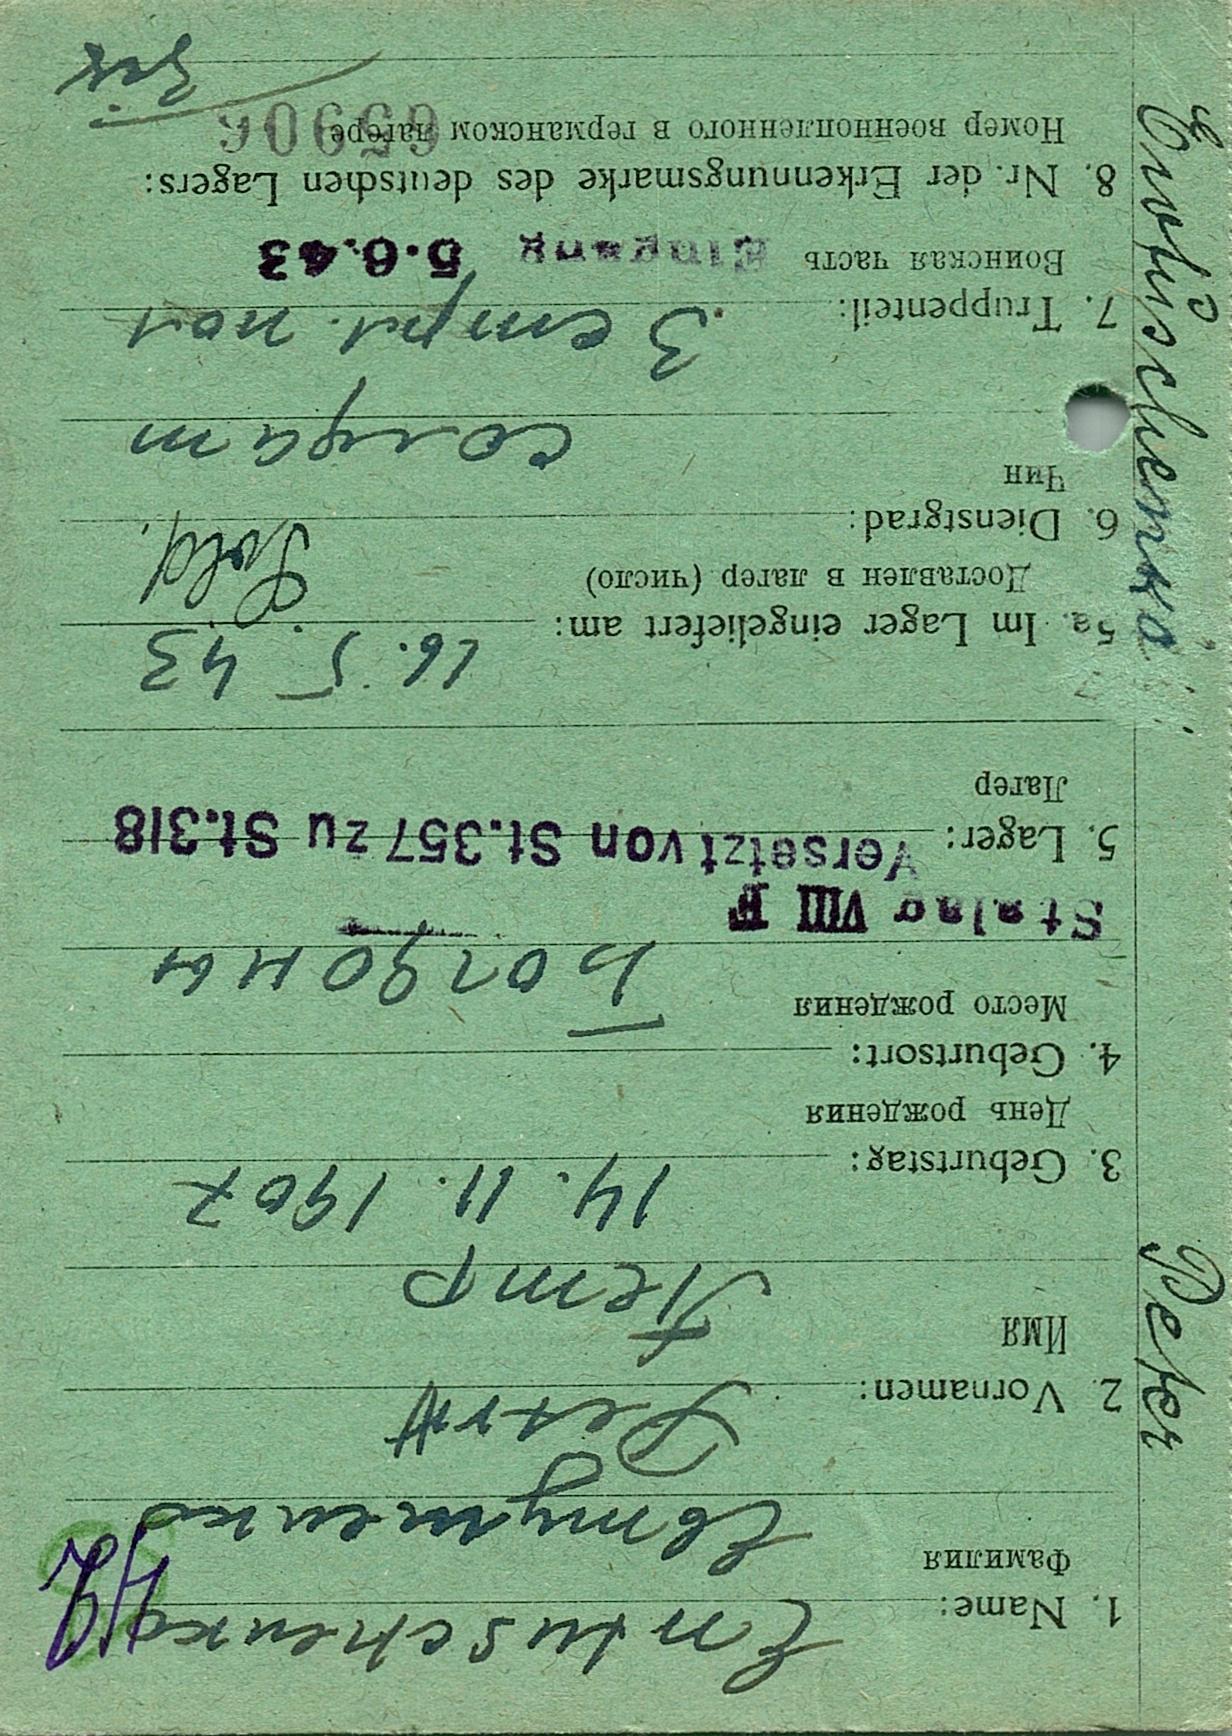 1. Name: Entuschenko
Фамилия Евтушенко
2. Vornamen: Petr
Имя Петр
3. Geburtstag: 14. 11. 1907
День рождения
4. Geburtsort:
Место рождения
Stalag VIII F
5. Lager: Versetzt von St.357 zu St.318
Лагер
5a. Im Lager eingeliefert am: 26. 5 43
Доставлен в лагер (число)
6. Dienstgrad: Sold.
Чин солдат
7. Truppenteil: 3
Воинская часть Eingang 5.6.43
8. Nr. der Erkennungsmarke des deutschen Lagers:
Номер военнопленного в германском лагере 65906
Peter